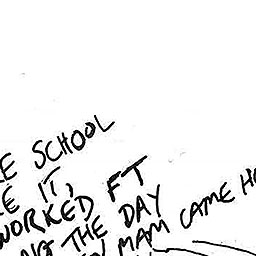 RE SCHOOL
RE IT,
WORKED FT
NG THE DAY
MAM CAME H